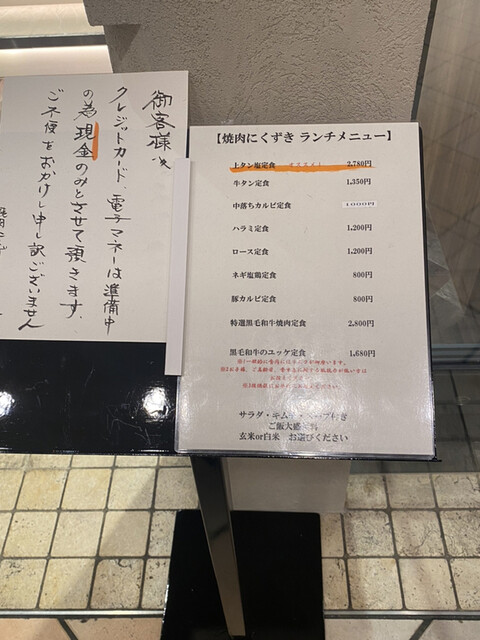 御客様へ
クレジットカード、電子マネーは準備中
の為現金のみとさせて頂きます。
ご不便をおかけし申し訳ございません
【焼肉にくずき ランチメニュー】
上タン塩定食 オススメ! 2,780円
牛タン定食 1,350円
中落ちカルビ定食 1,000円
ハラミ定食 1,200円
ロース定食 1,200円
ネギ塩鶏定食 800円
豚カルビ定食 800円
特選黒毛和牛焼肉定食 2,800円
黒毛和牛のユッケ定食 1,680円
※1一般的に食肉の生食は
サラダ・キムチ・スープ付き
ご飯大盛無料
玄米or白米 お選びください